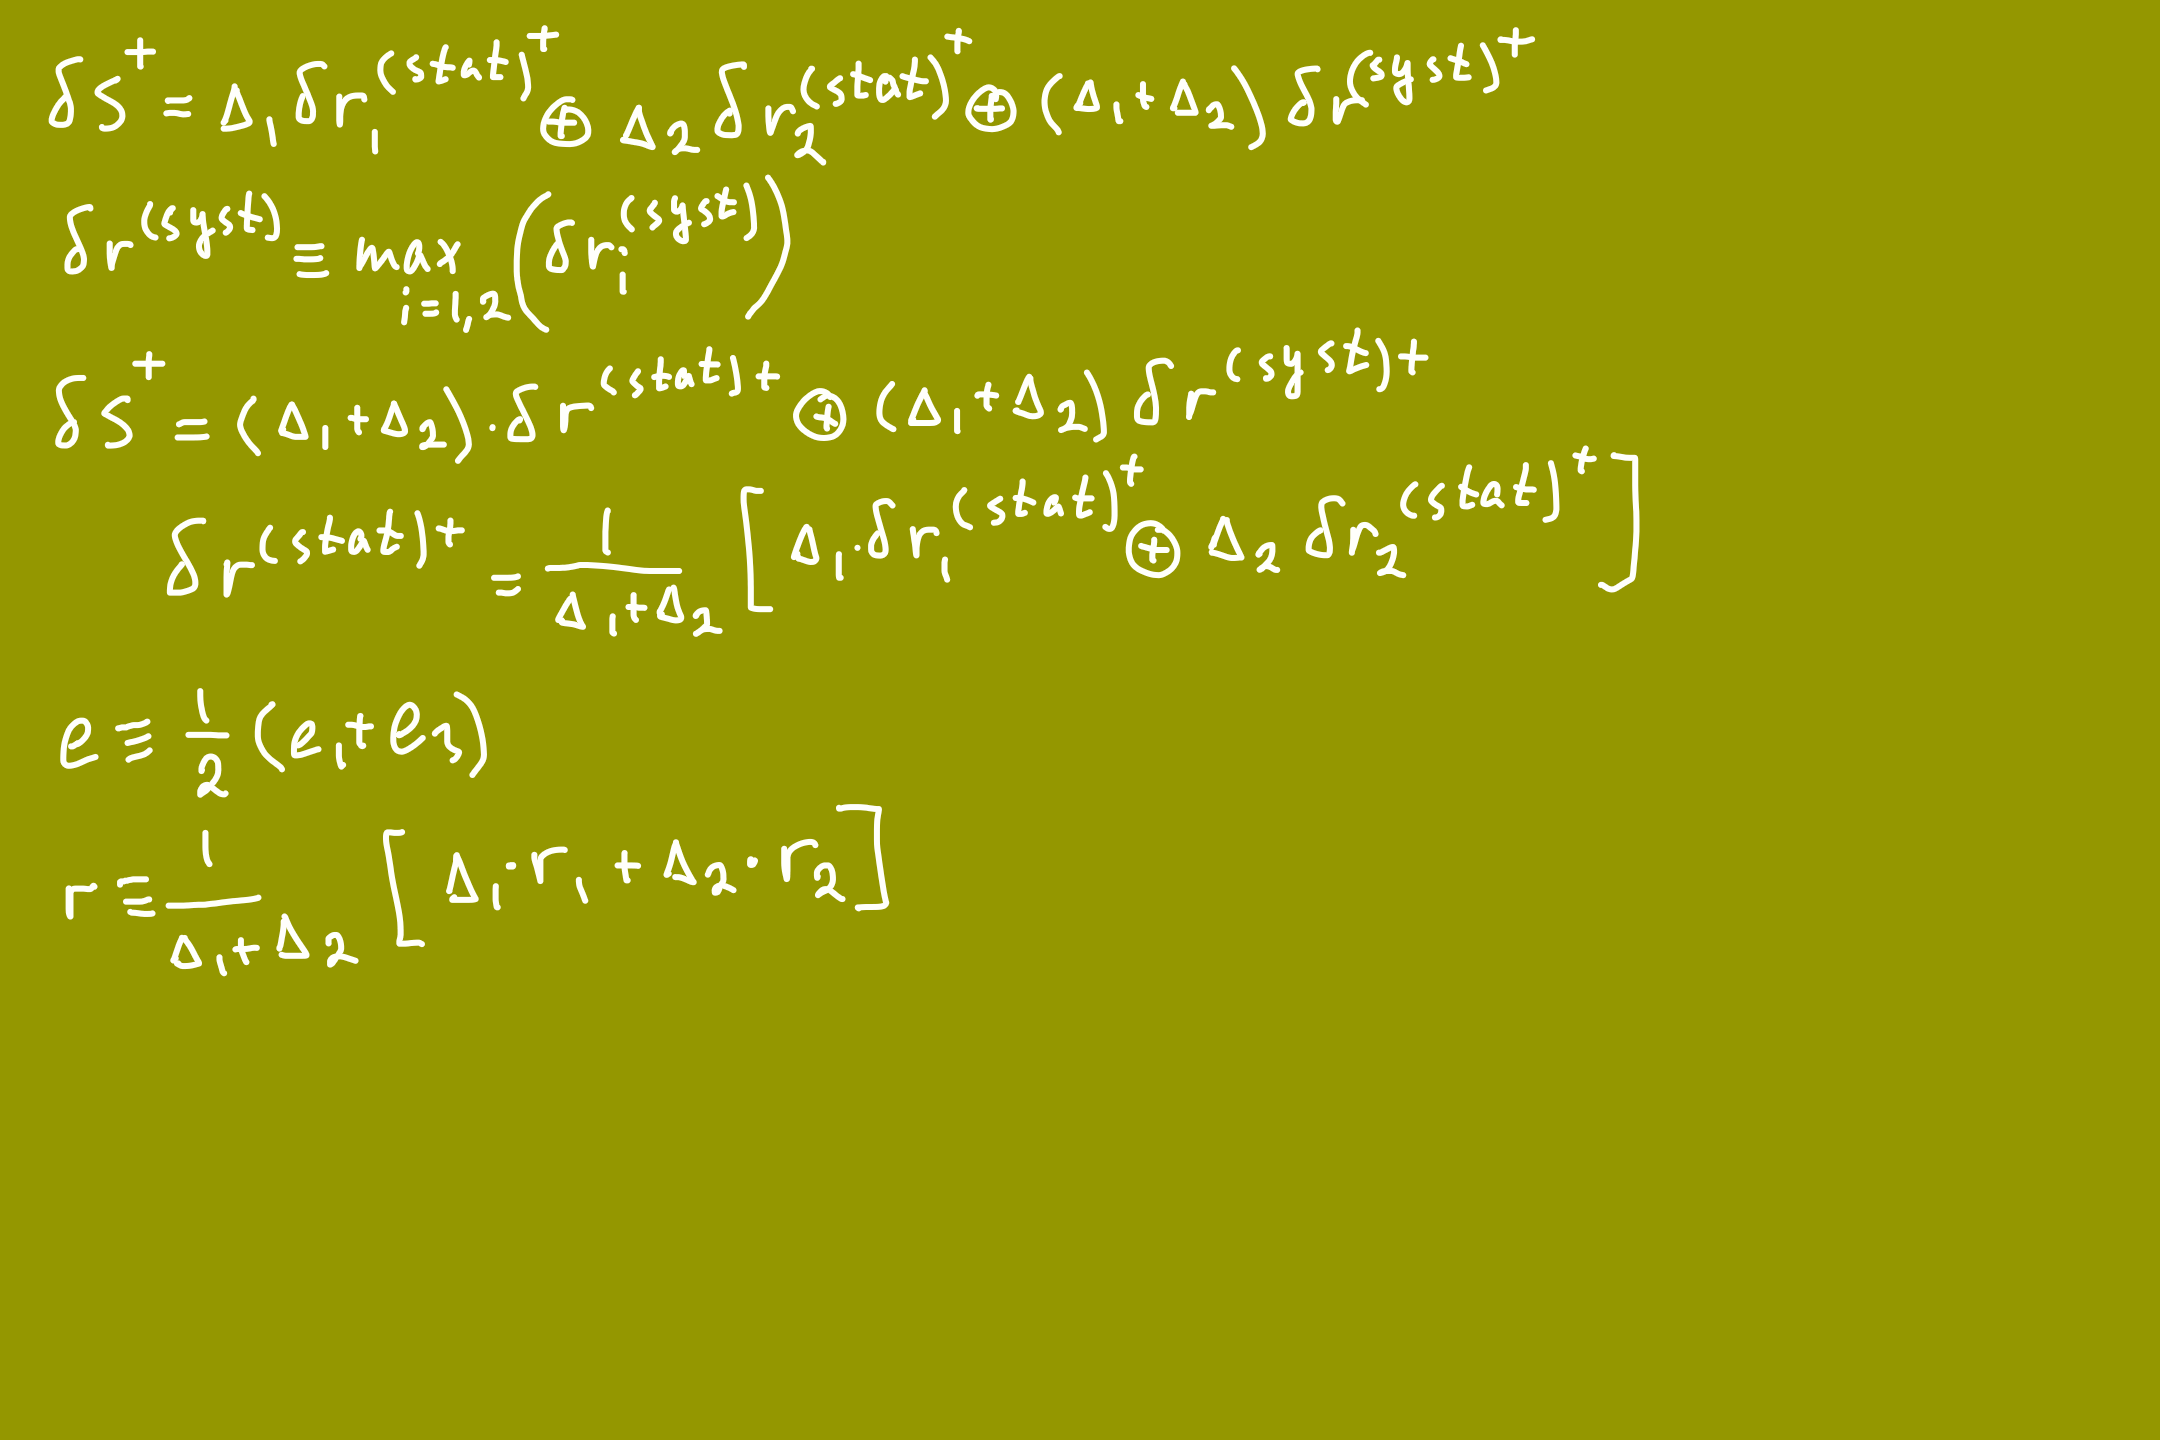 δS⁺ = Δ₁ δr₁^(stat)⁺ ⊕ Δ₂ δr₂^(stat)⁺ ⊕ (Δ₁ + Δ₂) δr^(syst)⁺
δr^(syst) ≡ max_{i=1,2} (δr_i^(syst))
δS⁺ = (Δ₁ + Δ₂) · δr^(stat)+ ⊕ (Δ₁ + Δ₂) δr^(syst)+
δr^(stat)+ = 1/(Δ₁ + Δ₂) [Δ₁ · δr₁^(stat)⁺ ⊕ Δ₂ δr₂^(stat)⁺]
e ≡ 1/2 (e₁ + e₃)
r ≡ 1/(Δ₁ + Δ₂) [Δ₁ · r₁ + Δ₂ · r₂]